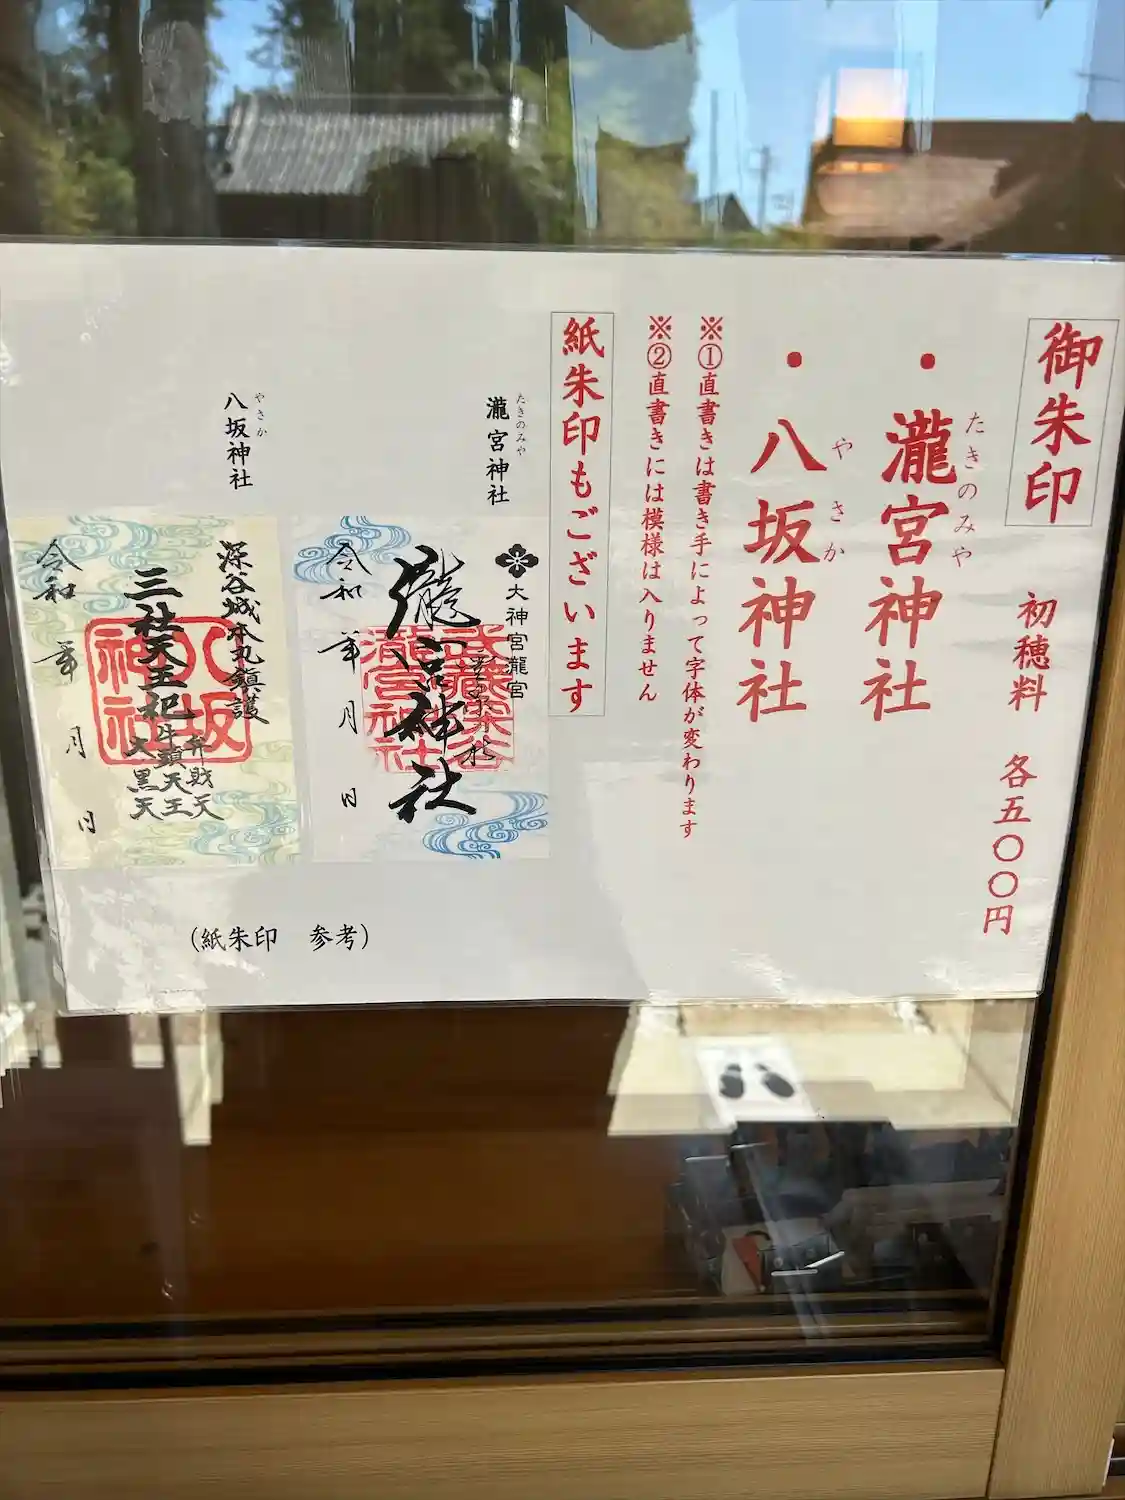 御朱印
初穂料 各五〇〇円
・瀧宮神社
たきのみや
・八坂神社
やさか
※①直書きは書き手によって字体が変わります
※②直書きには模様は入りません
紙朱印もございます
瀧宮神社
たきのみや
大神宮瀧宮
瀧宮神社
令和 年 月 日
八坂神社
やさか
深谷城本丸鎮護
三社天王祀
弁財天
牛頭天王
大黒天
八坂神社
令和 年 月 日
(紙朱印 参考)